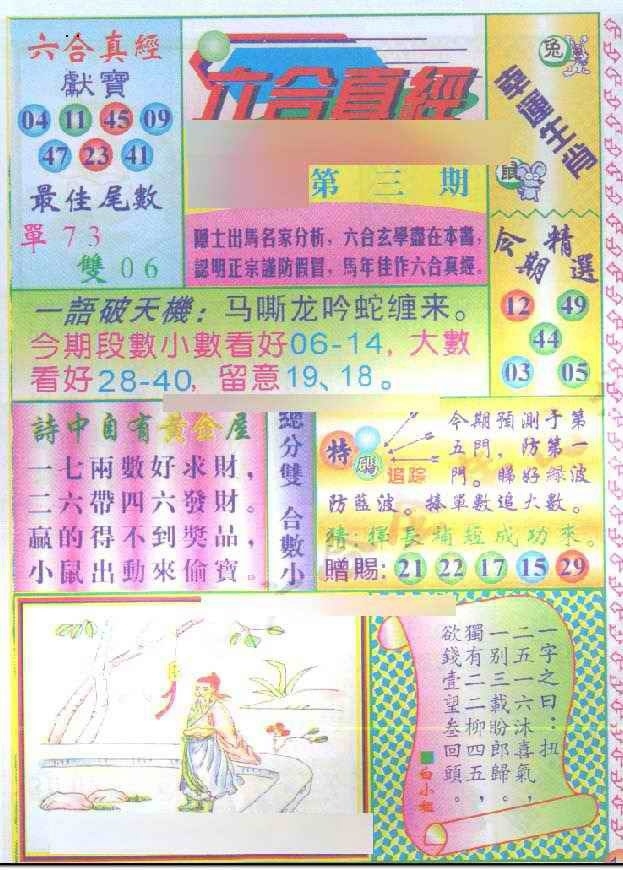 六合真經
獻寶
04 11 45 09
47 23 41
最佳尾數
單 73
雙 06
六合真經
第三期
隱士出馬名家分析，六合玄學盡在本書，
認明正宗謹防假冒，馬年佳作六合真經。
幸運生肖
兔
鼠
今期精選
12 49
44
03 05
一語破天機：马嘶龙吟蛇缠来。
今期段數小數看好06-14，大數
看好28-40，留意19、18。
詩中自有黃金屋
一七兩數好求財，
二六帶四六發財。
贏的得不到獎品，
小鼠出動來偷寶。
總分雙 合數小
特碼追踪
今期預測于第
五門，防第一
門。睇好綠波
防藍波。捧單數追大數。
成功來。
贈賜：21 22 17 15 29
一字之曰：扭
二五一六沐喜氣，
一别三載盼郎歸。
獨有二二柳四五，
欲錢壹望叁回頭。
白小姐